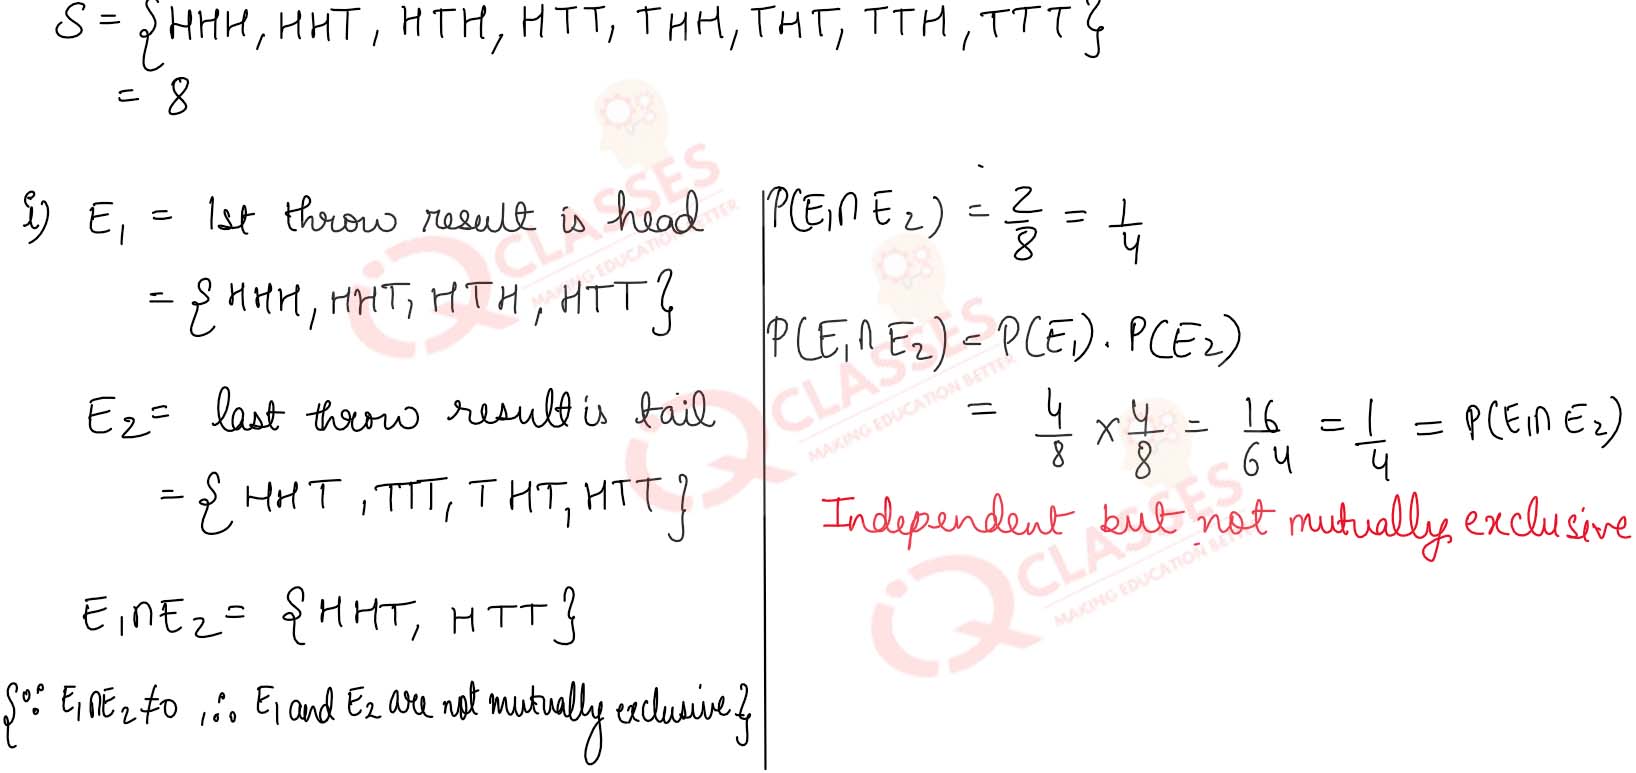 S = {HHH, HHT, HTH, HTT, THH, THT, TTH, TTT}
= 8
i) E₁ = 1st throw result is head
= {HHH, HHT, HTH, HTT}
E₂ = last throw result is tail
= {HHT, TTT, THT, HTT}
E₁∩E₂ = {HHT, HTT}
{∵ E₁∩E₂ ≠ 0, ∴ E₁ and E₂ are not mutually exclusive}
P(E₁∩E₂) = 2/8 = 1/4
P(E₁∩E₂) = P(E₁). P(E₂)
= 4/8 × 4/8 = 16/64 = 1/4 = P(E₁∩E₂)
Independent but not mutually exclusive
iQ CLASSES
MAKING EDUCATION BETTER
iQ CLASSES
MAKING EDUCATION BETTER
iQ CLASSES
MAKING EDUCATION BETTER